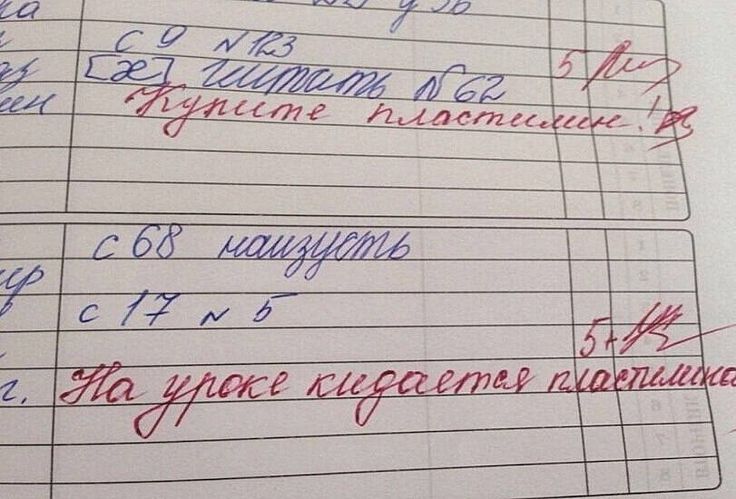 ка
с 9 N123
[ж] читать N62 5
Купите пластилин!
с 68 наизусть
с 17 N 5
5+
г. На уроке кидается пластилино